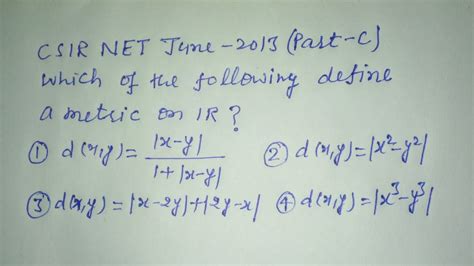 CSIR NET June-2013 (Part-C)
which of the following define
a metric on IR?
① d(x,y) = |x-y| / 1+|x-y| ② d(x,y) = |x²-y²|
③ d(x,y) = |x-2y|+|2y-x| ④ d(x,y) = |x³-y³|